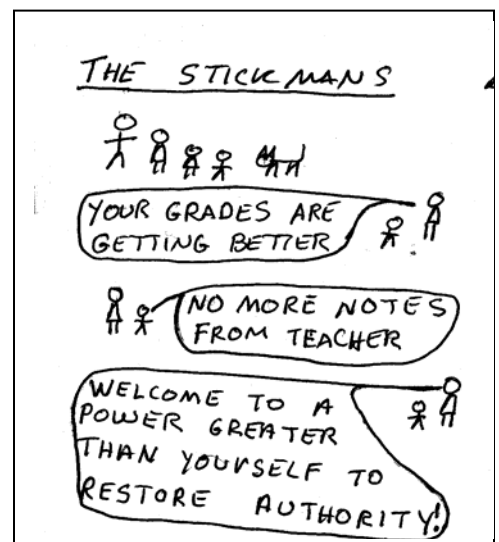 THE STICKMANS
YOUR GRADES ARE
GETTING BETTER
NO MORE NOTES
FROM TEACHER
WELCOME TO A
POWER GREATER
THAN YOURSELF TO
RESTORE AUTHORITY!